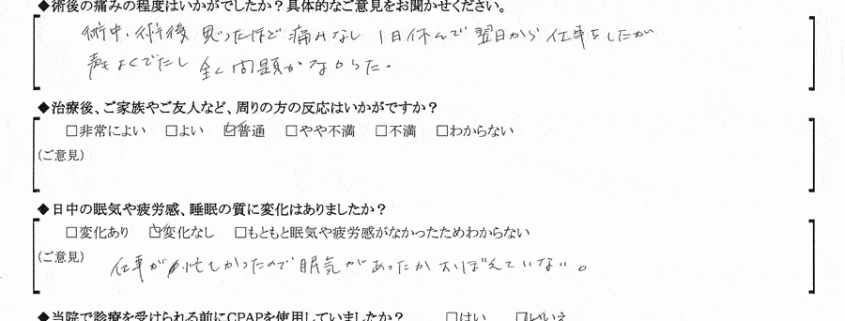 ◆術後の痛みの程度はいかがでしたか？具体的なご意見をお聞かせください。
術中、術後 思ったほど痛みなし 1日休んで翌日から仕事をしたが
声もよくでたし 全く問題がなかった。
◆治療後、ご家族やご友人など、周りの方の反応はいかがですか？
□非常によい □よい ☑普通 □やや不満 □不満 □わからない
(ご意見)
◆日中の眠気や疲労感、睡眠の質に変化はありましたか？
□変化あり ☑変化なし □もともと眠気や疲労感がなかったためわからない
(ご意見) 仕事が忙しかったので眠気があったかおぼえていない。
◆当院で診療を受けられる前にCPAPを使用していましたか？ □はい ☑いいえ